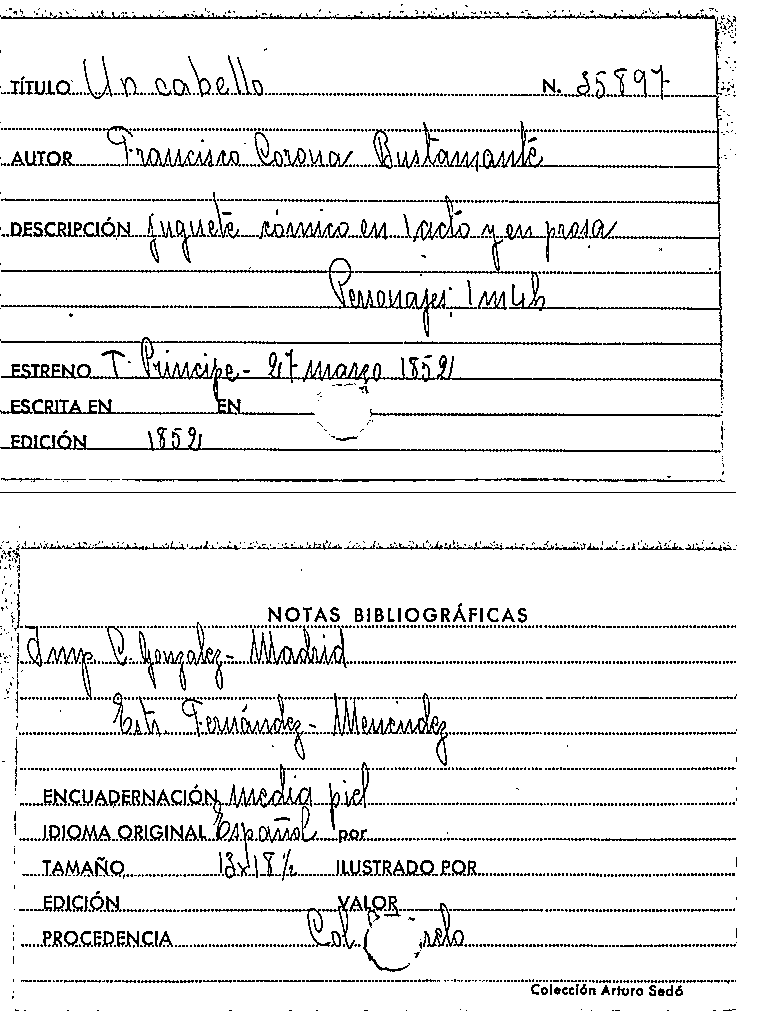 TÍTULO Un cabello N. 35897
AUTOR Francisco Corona Bustamante
DESCRIPCIÓN juguete cómico en 1 acto y en prosa
Personajes: 1 m 4 h
ESTRENO T. Principe - 27 marzo 1852
ESCRITA EN EN
EDICIÓN 1852
NOTAS BIBLIOGRÁFICAS
Imp. C. Gonzalez - Madrid
Estr. Fernández - Menendez
ENCUADERNACIÓN media piel
IDIOMA ORIGINAL Español por
TAMAÑO 13x18½ ILUSTRADO POR
EDICIÓN VALOR
PROCEDENCIA Col.
Colección Arturo Sedó